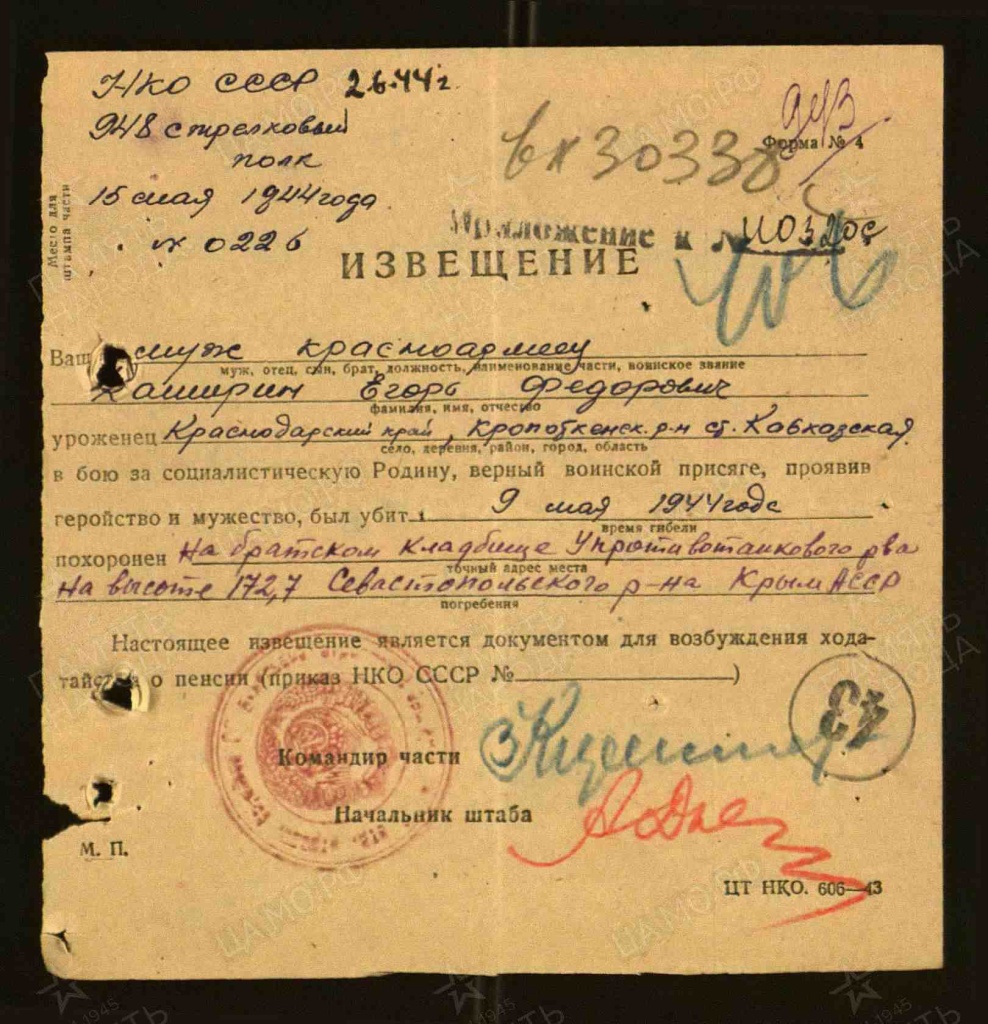 НКО СССР 2.6.44 г.
948 стрелковый
полк
15 мая 1944 года
№ 0226
Место для
штампа части
вх 30338
Форма № 4
Приложение к №
ИЗВЕЩЕНИЕ
Ваш муж красноармеец
муж, отец, сын, брат, должность, наименование части, воинское звание
Каширин Егорь Федорович
фамилия, имя, отчество
уроженец Краснодарский край, Кропоткенск. р-н ст. Кавказская
село, деревня, район, город, область
в бою за социалистическую Родину, верный воинской присяге, проявив
геройство и мужество, был убит 9 мая 1944 года
время гибели
похоронен На братском кладбище У противотанкового рва
точный адрес места
На высоте 172,7 Севастопольского р-на Крым АССР
погребения
Настоящее извещение является документом для возбуждения хода-
тайства о пенсии (приказ НКО СССР № )
43
Командир части
Начальник штаба
М. П.
ЦТ НКО. 606—43